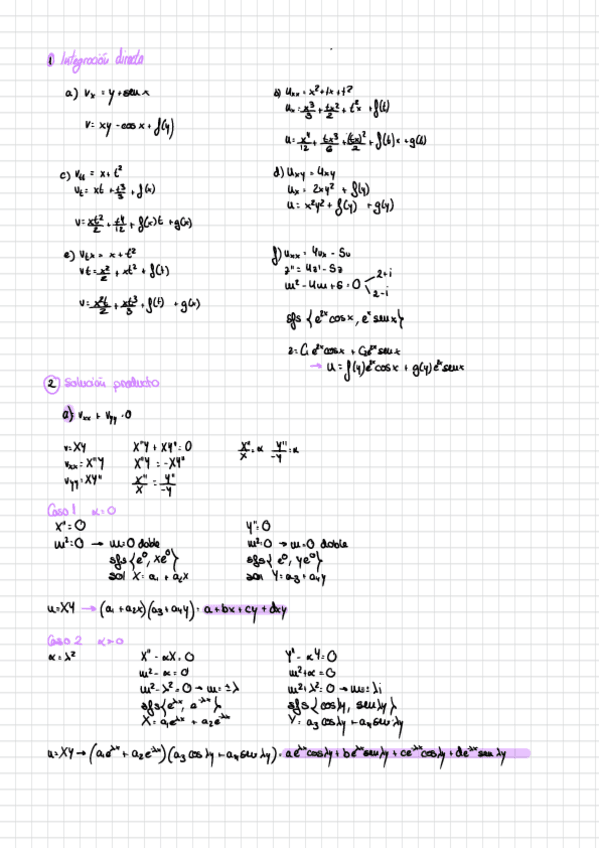 1 Integración directa
a) vₓ = y + sen x
v = xy - cos x + f(y)
b) uₓₓ = x² + tx + t²
uₓ = x³/3 + tx²/2 + t²x + f(t)
u = x⁴/12 + tx³/6 + (tx)²/2 + f(t)x + g(t)
c) vₜₜ = x + t²
vₜ = xt + t³/3 + f(x)
v = xt²/2 + t⁴/12 + f(x)t + g(x)
d) uₓy = 4xy
uₓ = 2xy² + f(y)
u = x²y² + f(y) + g(y)
e) vₜₓ = x + t²
vₜ = x²/2 + xt² + f(t)
v = x²t/2 + xt³/3 + f(t) + g(x)
f) uₓₓ = 4uₓ - 5u
z'' = 4z' - 5z
m² - 4m + 5 = 0 2+i
2-i
sfs {e²ˣcos x, eˣ sen x}
z = C₁e²ˣcos x + C₂e²ˣ sen x
→ u = f(y)e²ˣcos x + g(y)e²ˣ sen x
2 Solución producto
a) vₓₓ + vyy = 0
v = XY X''Y + XY'' = 0 X''/X = α Y''/-Y = α
vₓₓ = X''Y X''Y = -XY''
vyy = XY'' X''/X = Y''/-Y
Caso 1 α = 0
X'' = 0 Y'' = 0
m² = 0 → m = 0 doble m² = 0 → m = 0 doble
sfs {e⁰, xe⁰} sfs {e⁰, ye⁰}
sol X = a₁ + a₂x sol Y = a₃ + a₄y
u = XY → (a₁ + a₂x)(a₃ + a₄y) = a + bx + cy + dxy
Caso 2 α > 0
α = λ² X'' - αX = 0 Y'' - αY = 0
m² - α = 0 m² + α = 0
m² - λ² = 0 → m = ±λ m² + λ² = 0 → m = λi
sfs {e^λx, e^-λx} sfs {cos λy, sen λy}
X = a₁e^λx + a₂e^-λx Y = a₃ cos λy + a₄ sen λy
u = XY → (a₁e^λx + a₂e^-λx)(a₃ cos λy + a₄ sen λy) = ae^λx cos λy + be^λx sen λy + ce^-λx cos λy + de^-λx sen λy